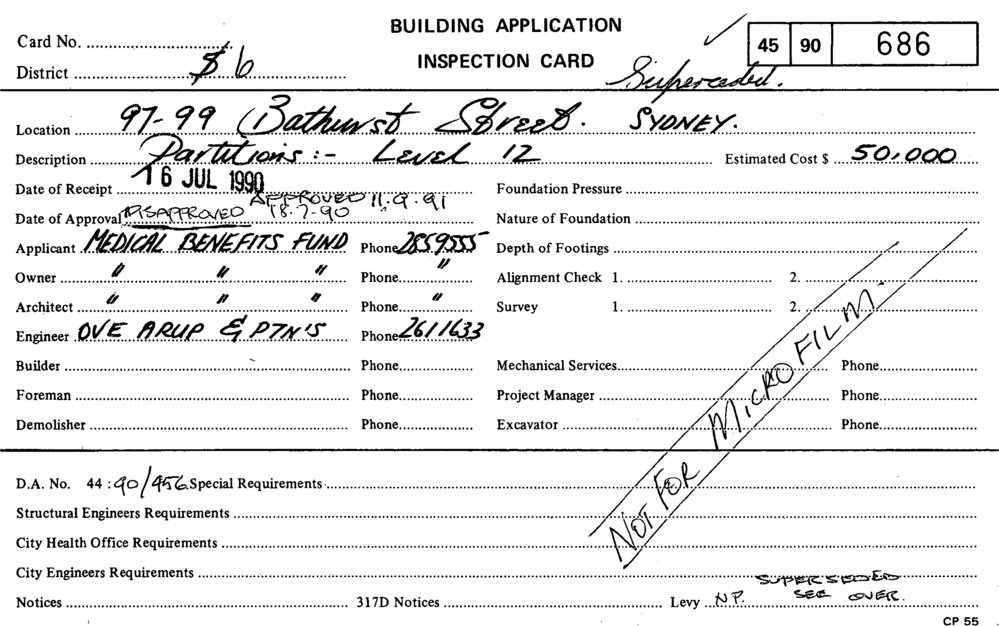 BUILDING APPLICATION
INSPECTION CARD
Card No.
District 6
45 90 686
Superceded.
Location 97-99 Bathurst Street. SYDNEY.
Description Partitions :- Level 12 Estimated Cost $ 50,000
Date of Receipt 16 JUL 1990 Foundation Pressure
APPROVED 11.9.91
Date of Approval DISAPPROVED 18.7.90 Nature of Foundation
Applicant MEDICAL BENEFITS FUND Phone 2859555 Depth of Footings
Owner " " " Phone " Alignment Check 1. 2.
Architect " " " Phone " Survey 1. 2.
Engineer OVE ARUP & PTN'S Phone 2611633
Builder Phone Mechanical Services Phone
Foreman Phone Project Manager Phone
Demolisher Phone Excavator Phone
NOT FOR MICROFILM.
D.A. No. 44 : 90/456 Special Requirements
Structural Engineers Requirements
City Health Office Requirements
City Engineers Requirements
SUPERSEDED
Notices 317D Notices Levy NP. SEE OVER.
CP 55